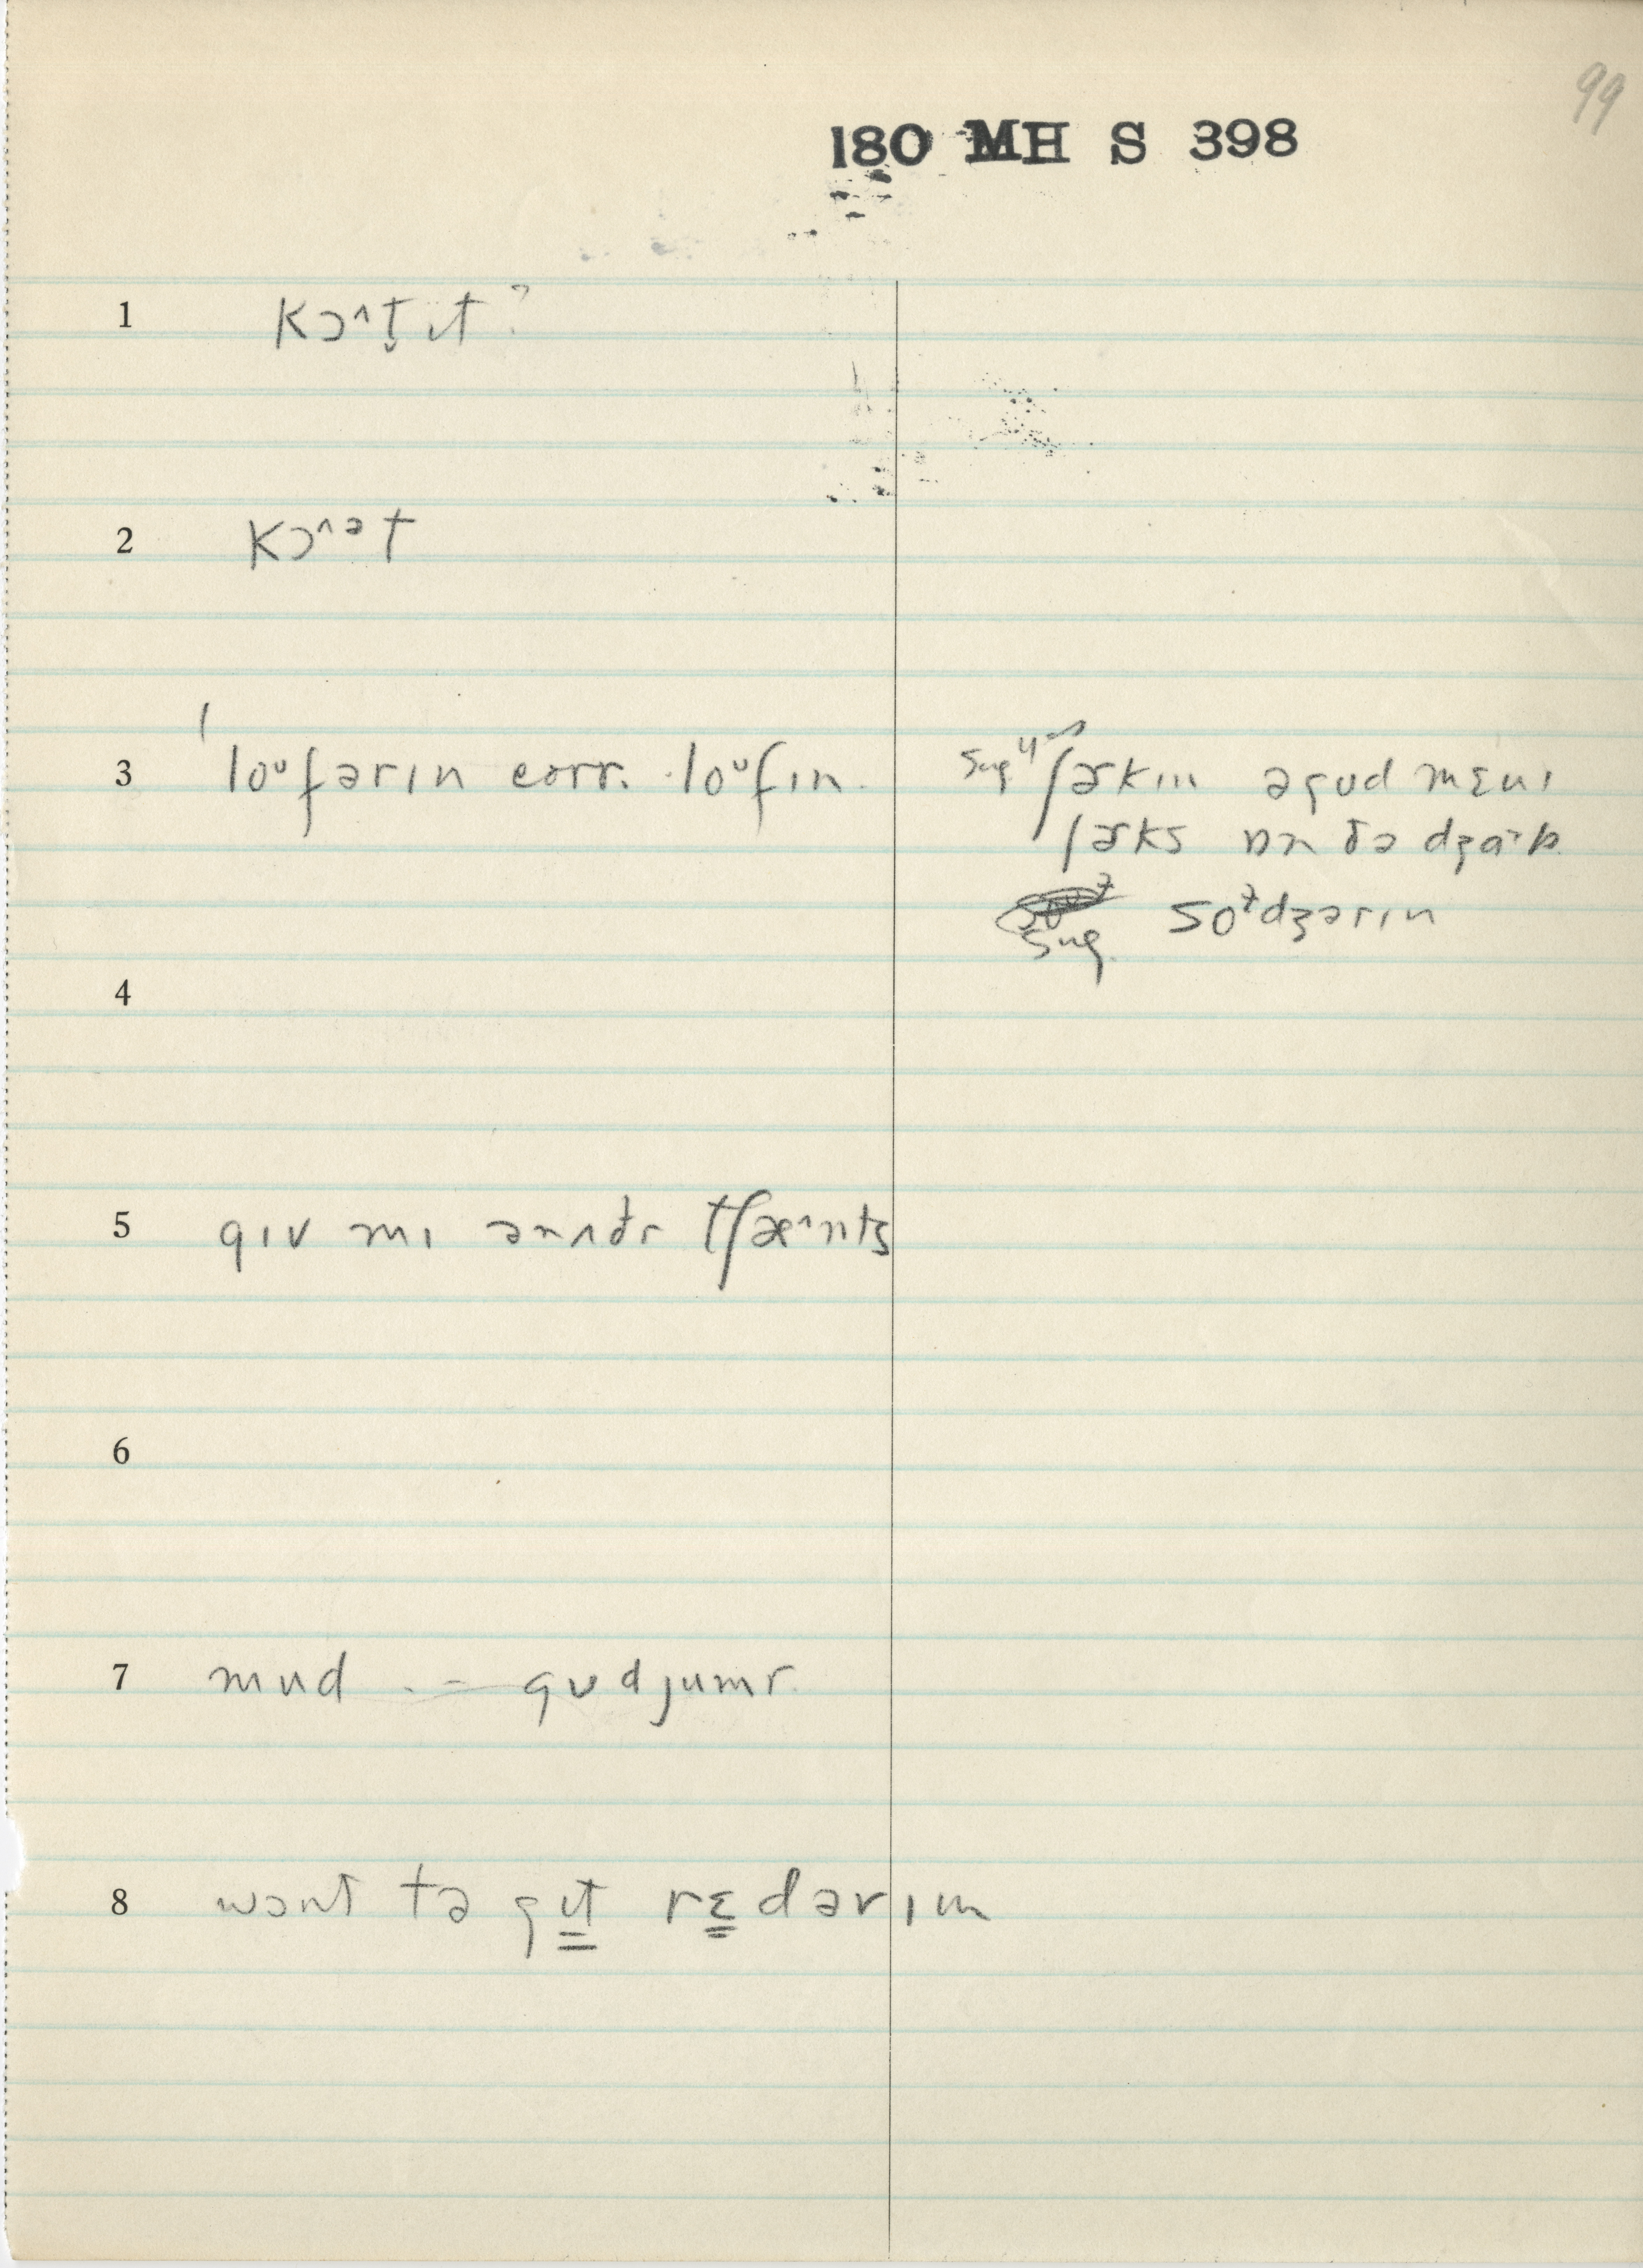 99
180 MH S 398
1 kɔ^t̬ ɪt ?
2 kɔ^ət
3 loᶷfərɪn corr. loᶷfɪn. sug. ʃɚkɪn əgʊd mɛnɪ
ʃɚks ɒn ðə dʒɑ^b.
sug. soɫdʒərɪn
4
5 gɪv mɪ ənʌðr tʃæ^nts
6
7 mud -- gʊdjumr.
8 wɔnt tə gɪt rɛdərɪm